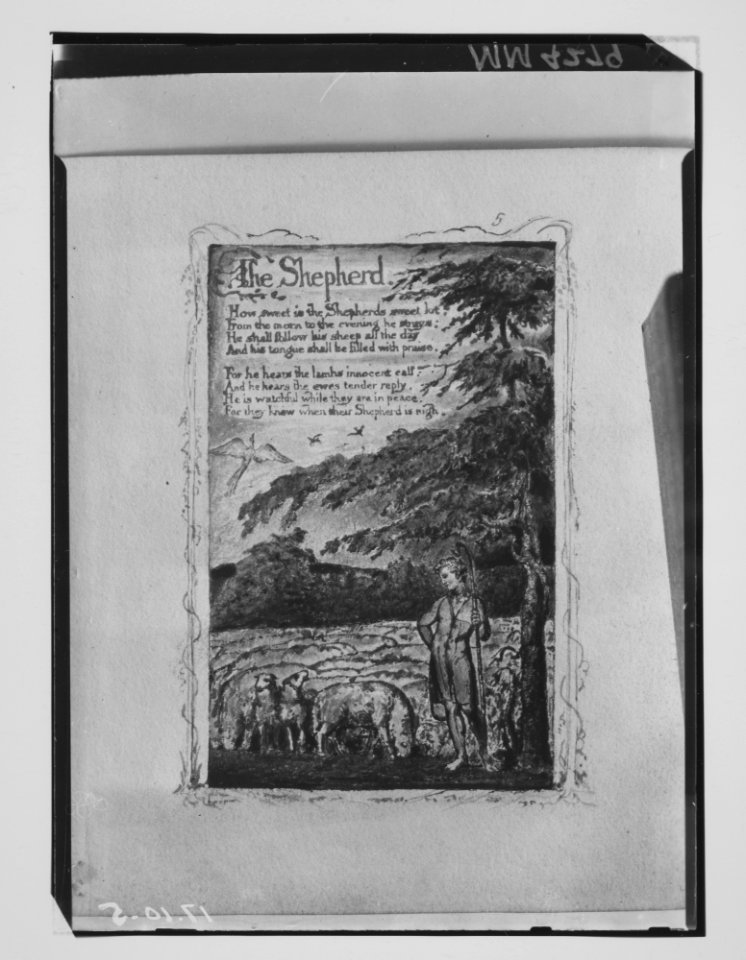 MM 4279
5
The Shepherd.
How sweet is the Shepherds sweet lot,
From the morn to the evening he strays:
He shall follow his sheep all the day
And his tongue shall be filled with praise.
For he hears the lambs innocent call,
And he hears the ewes tender reply.
He is watchful while they are in peace,
For they know when their Shepherd is nigh.
17.10-5